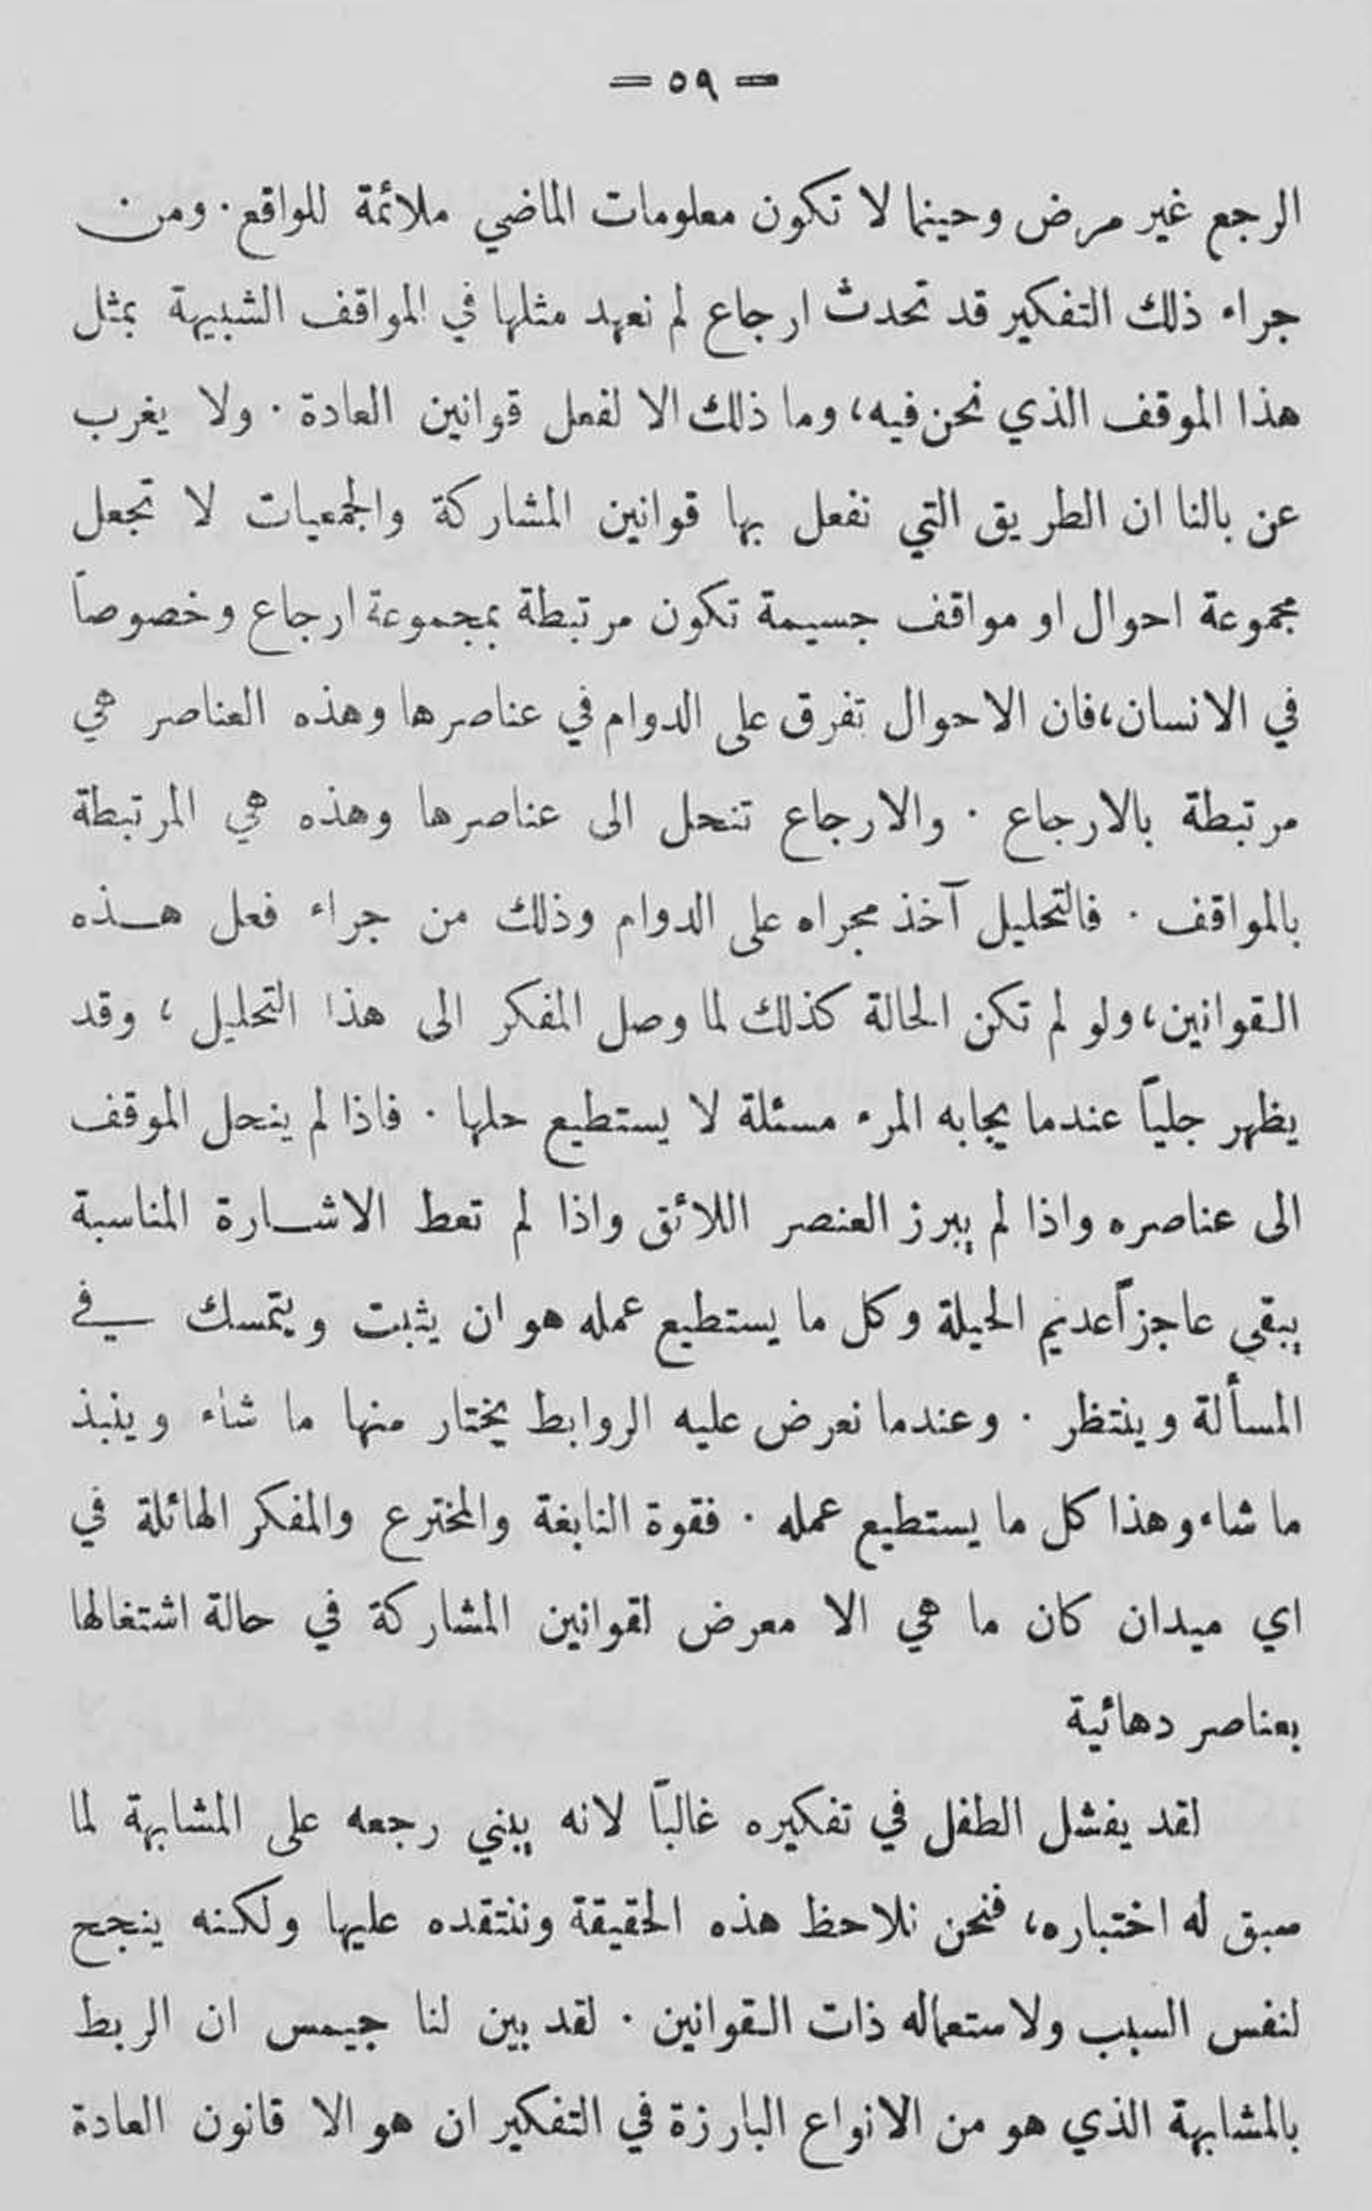 = ٥٩ =
الرجع غير مرض وحينما لا تكون معلومات الماضي ملائمة للواقع . ومن
جراء ذلك التفكير قد تحدث ارجاع لم نعهد مثلها في المواقف الشبيهة بمثل
هذا الموقف الذي نحن فيه، وما ذلك الا لفعل قوانين العادة . ولا يغرب
عن بالنا ان الطريق التي نفعل بها قوانين المشاركة والجمعيات لا تجعل
مجموعة احوال او مواقف جسيمة تكون مرتبطة بمجموعة ارجاع وخصوصاً
في الانسان، فان الاحوال تفرق على الدوام في عناصرها وهذه العناصر هي
مرتبطة بالارجاع . والارجاع تنحل الى عناصرها وهذه هي المرتبطة
بالمواقف . فالتحليل آخذ مجراه على الدوام وذلك من جراء فعل هذه
القوانين، ولو لم تكن الحالة كذلك لما وصل المفكر الى هذا التحليل ، وقد
يظهر جلياً عندما يجابه المرء مسئلة لا يستطيع حلها . فاذا لم ينحل الموقف
الى عناصره واذا لم يبرز العنصر اللائق واذا لم تعط الاشارة المناسبة
يبقى عاجزاً عديم الحيلة وكل ما يستطيع عمله هو ان يثبت ويتمسك في
المسألة وينتظر . وعندما نعرض عليه الروابط يختار منها ما شاء وينبذ
ما شاء وهذا كل ما يستطيع عمله . فقوة النابغة والمخترع والمفكر الهائلة في
اي ميدان كان ما هي الا معرض لقوانين المشاركة في حالة اشتغالها
بعناصر دهائية
لقد يفشل الطفل في تفكيره غالباً لانه يبني رجعه على المشابهة لما
سبق له اختباره، فنحن نلاحظ هذه الحقيقة وننتقده عليها ولكنه ينجح
لنفس السبب ولاستعماله ذات القوانين . لقد بين لنا جيمس ان الربط
بالمشابهة الذي هو من الانواع البارزة في التفكير ان هو الا قانون العادة